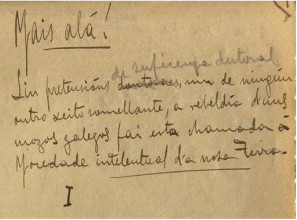 Mais alá!
de suficenza doutoral
Sin pretensiós doutoraes, nin de ningún
outro xeito somellante, a rebeldía d'uns
mozos galegos fai esta chamada á
Mocedade intelentual d'a nosa Terra.
I